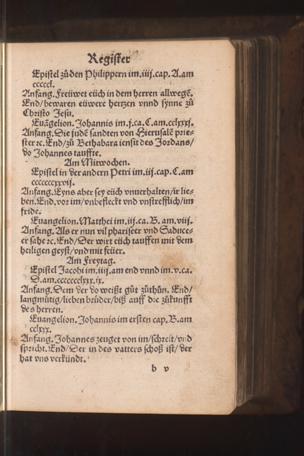 Register
Epistel zůden Philippern im.iiij.cap.A.am
cccccl.
Anfang. Freüwet eüch in dem herren allwegẽ.
End/bewaren eüwere hertzen vnnd synne zů
Christo Jesu.
Euãgelion. Johannis im.j.ca.C.am.cclxxj.
Anfang. Die judẽ sandten von Hierusalẽ prie⸗
ster ꝛc. End/zů Bethabara iensit des Jordans/
do Johannes tauffte.
Am Mitwochen.
Epistel in der andern Petri im.iij.cap.C.am
ccccccccxvij.
Anfang. Eyns aber sey eüch vnuerhalten/ir lie⸗
ben. End, vor im/vnbefleckt vnd vnstrefflich/im
fride.
Euangelion. Matthei im.iij.ca.B.am.viij.
Anfang. Als er nun vil phariseer vnd Saduce⸗
er sahe ꝛc. End/Der wirt eüch tauffen mit dem
heiligen geyst/vnd mit feüer.
Am Freytag.
Epistel Jacobi im.iiij.am end vnnd im.v.ca.
Anfang. Dem der do weißt gůt zůthůn. End/
langmütig/lieben brüder/biß auff die zůkunfft
des herren.
Euangelion. Johannis im ersten cap.B.am
cclxx.
Anfang. Johannes zeuget von im/schreit/vnd
spricht. End/Der in des vatters schoß ist/der
hat vns verkündt.
b v